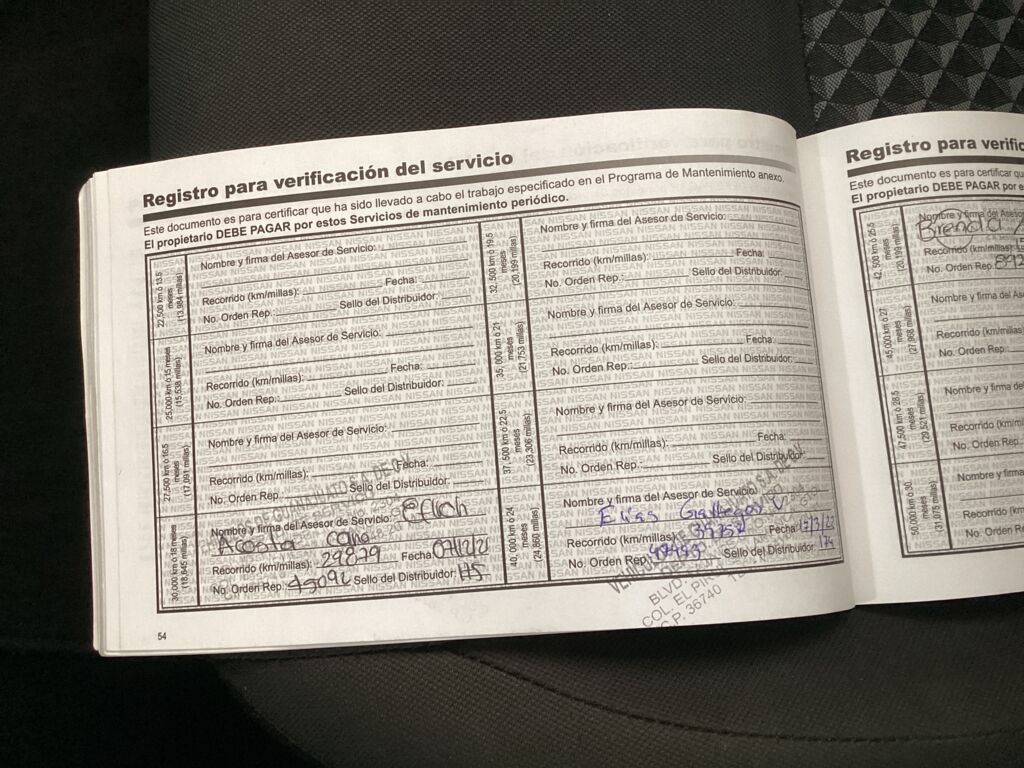 Registro para verificación del servicio
Este documento es para certificar que ha sido llevado a cabo el trabajo especificado en el Programa de Mantenimiento anexo.
El propietario DEBE PAGAR por estos Servicios de mantenimiento periódico.
22,500 km ó 13.5 meses
Nombre y firma del Asesor de Servicio:
Recorrido (km/millas): Fecha:
No. Orden Rep.: Sello del Distribuidor:
25,000 km ó 15 meses (15,538 millas)
Nombre y firma del Asesor de Servicio:
Recorrido (km/millas): Fecha:
No. Orden Rep.: Sello del Distribuidor:
27,500 km ó 16.5 meses
Nombre y firma del Asesor de Servicio:
Recorrido (km/millas): Fecha:
No. Orden Rep.: Sello del Distribuidor:
30,000 km ó 18 meses (18,645 millas)
Nombre y firma del Asesor de Servicio:
Acosta
Recorrido (km/millas): 29879 Fecha: 07/12/21
No. Orden Rep.: 45092 Sello del Distribuidor: HS
54
32,500 km ó 19.5 meses (20,199 millas)
Nombre y firma del Asesor de Servicio:
Recorrido (km/millas): Fecha:
No. Orden Rep.: Sello del Distribuidor:
35,000 km ó 21 meses (21,753 millas)
Nombre y firma del Asesor de Servicio:
Recorrido (km/millas): Fecha:
No. Orden Rep.: Sello del Distribuidor:
37,500 km ó 22.5 meses (23,306 millas)
Nombre y firma del Asesor de Servicio:
Recorrido (km/millas): Fecha:
No. Orden Rep.: Sello del Distribuidor:
40,000 km ó 24 meses (24,860 millas)
Nombre y firma del Asesor de Servicio:
Elias Gallegos V
Recorrido (km/millas): Fecha:
No. Orden Rep.: Sello del Distribuidor:
BLVD.
COL. EL
C.P. 36740
Registro para verific
Este documento es para certificar qu
El propietario DEBE PAGAR por e
42,500 km ó 25.5 meses
Nombre y firma del Asesor
Brenda
Recorrido (km/millas):
No. Orden Rep.:
45,000 km ó 27 meses
Nombre y firma del As
Recorrido (km/millas
No. Orden Rep.:
47,500 km ó 28.5 meses (29,521 millas)
Nombre y firma del
Recorrido (km/mill
No. Orden Rep.:
50,000 km ó 30 meses (31,075 millas)
Nombre y firma
Recorrido (km/
No. Orden R